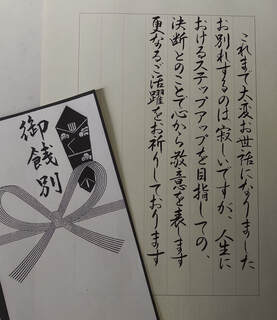 これまで大変お世話になりました
お別れするのは寂しいですが、人生に
おけるステップアップを目指しての、
決断とのことで心から敬意を表します
更なるご活躍をお祈りしております
御餞別